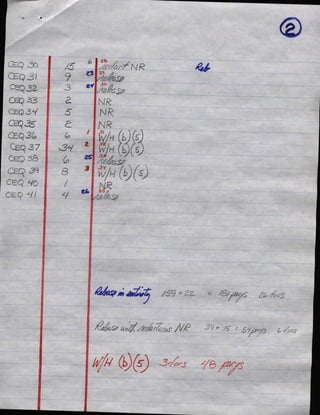 2
CEQ 30 15 6 redact NR Reb
CEQ 31 9 23 release
CEQ 32 3 24 release
CEQ 33 2 NR
CEQ 34 5 NR
CEQ 35 2 NR
CEQ 36 6 1 W/H (b)(5)
CEQ 37 34 2 W/H (b)(5)
CEQ 38 6 25 release
CEQ 39 8 3 W/H (b)(5)
CEQ 40 1 NR
CEQ 41 4 26 release
Release in entirety 159 + 22 = 181 pages 26 docs
Release with redactions NR 39 + 15 = 54 pages 6 docs
W/H (b)(5) 3 docs 48 pages